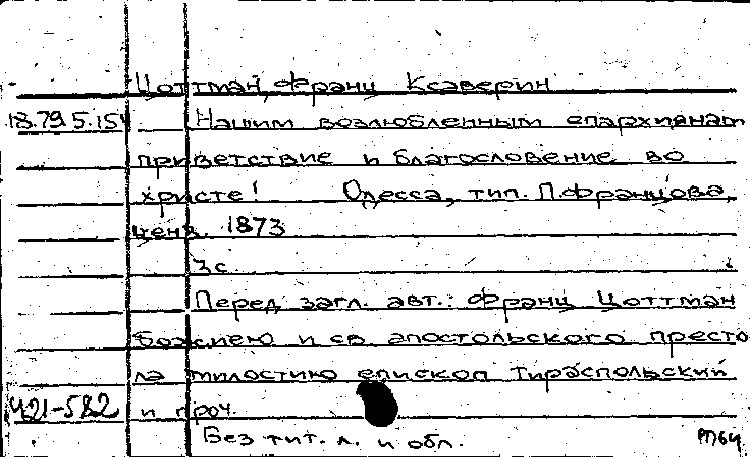 Цоттман, Франц Ксаверин
18.79 5.154 Нашим возлюбленным епархианам
приветствие и благословение во
христе! Одесса, тип. П.Францова,
ценз. 1873
3с.
Перед загл. авт.: Франц Цоттман
божиею и св. апостольского престо
ла милостию епископ Тираспольский
Ч21-582 и проч.
Без тит. л. и обл. РП64